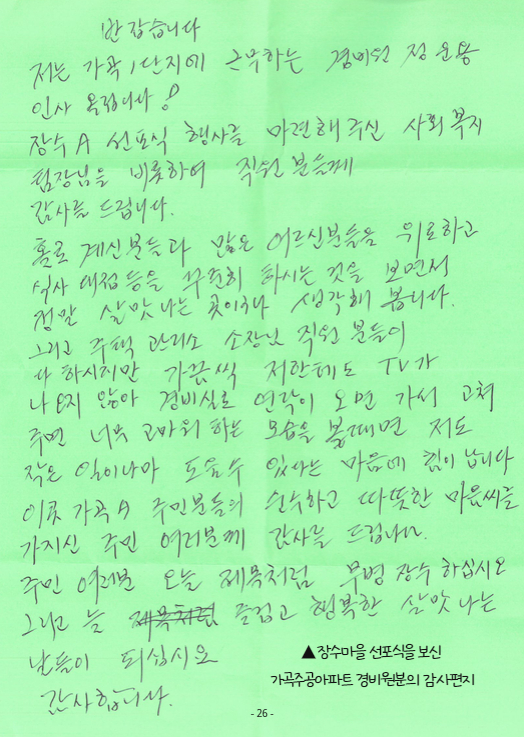 반갑습니다
저는 가곡 1단지에 근무하는 경비원 정운용
인사 올립니다!
장수A 선포식 행사를 마련해 주신 사회복지
팀장님을 비롯하여 직원분들께
감사를 드립니다.
홀로 계신분들과 많은 어르신분들을 위로하고
식사 대접 등을 꾸준히 하시는 것을 보면서
정말 살맛나는 곳이구나 생각해 봅니다.
그리고 주택 관리소 소장님 직원분들이
다 하시지만 가끔씩 저한테도 TV가
나오지 않아 경비실로 연락이 오면 가서 고쳐
주면 너무 고마워 하는 모습을 볼때면 저도
작은 일이나마 도울수 있다는 마음에 힘이 납니다
이곳 가곡A 주민분들의 순수하고 따뜻한 마음씨를
가지신 주민 여러분께 감사를 드립니다.
주민 여러분 오늘 제목처럼 무병장수 하십시오
그리고 늘 즐겁고 행복한 살맛나는
날들이 되십시오
감사합니다.
▲장수마을 선포식을 보신
가곡주공아파트 경비원분의 감사편지
- 26 -